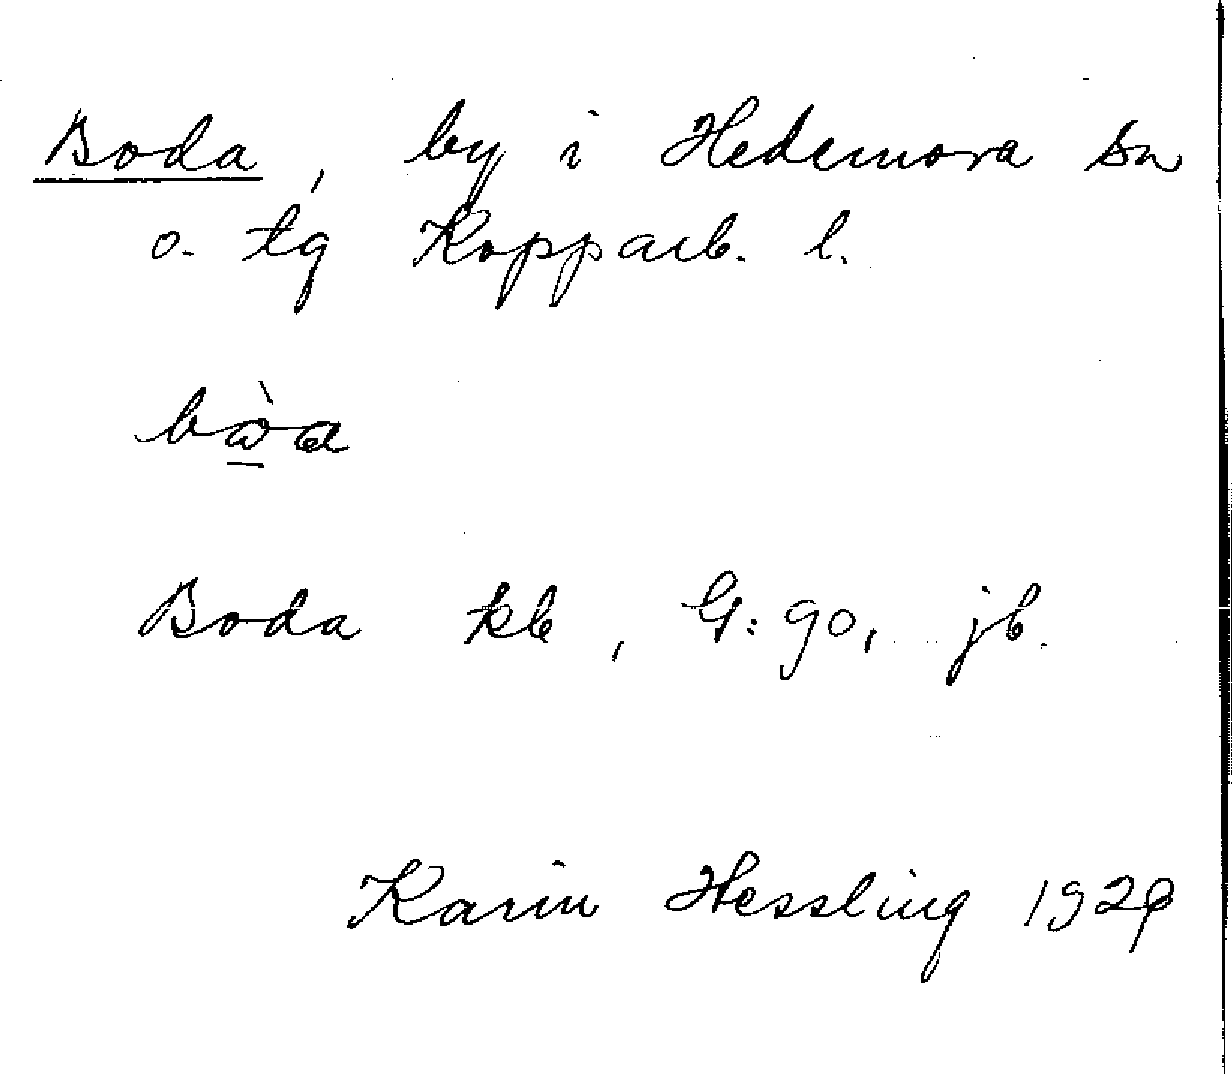 Boda, by i Hedemora sn
o. tg Kopparb. l.
bὼ̱a
Boda kb, G:90, jb.
Karin Hessling 1929